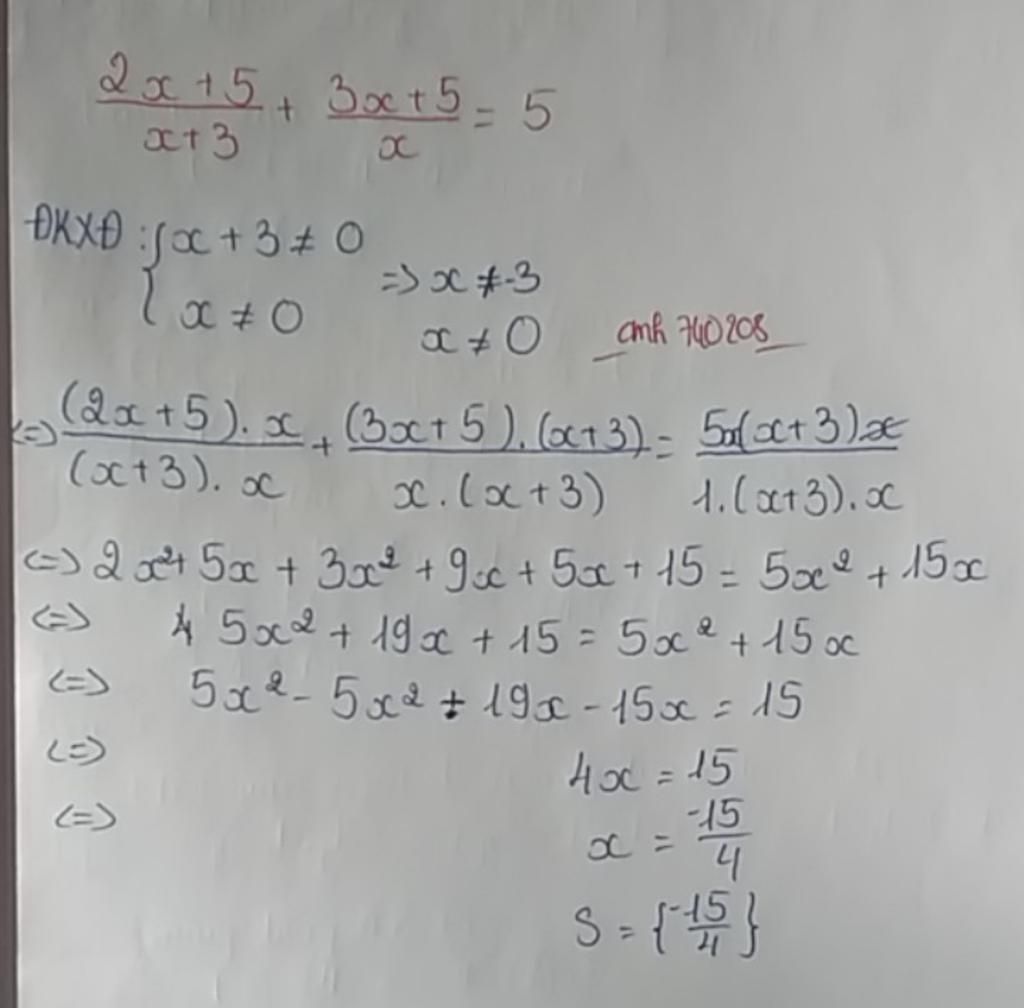 (2x+5)/(x+3) + (3x+5)/x = 5
ĐKXĐ: { x+3 ≠ 0
x ≠ 0
=> x ≠ -3
x ≠ 0
cmh 740208
<=> ((2x+5).x)/((x+3).x) + ((3x+5).(x+3))/(x.(x+3)) = (5x(x+3))/(1.(x+3).x)
<=> 2x²+ 5x + 3x² + 9x + 5x + 15 = 5x² + 15x
<=> 5x² + 19x + 15 = 5x² + 15x
<=> 5x² - 5x² + 19x - 15x = 15
<=> 4x = 15
<=> x = -15/4
S = {-15/4}